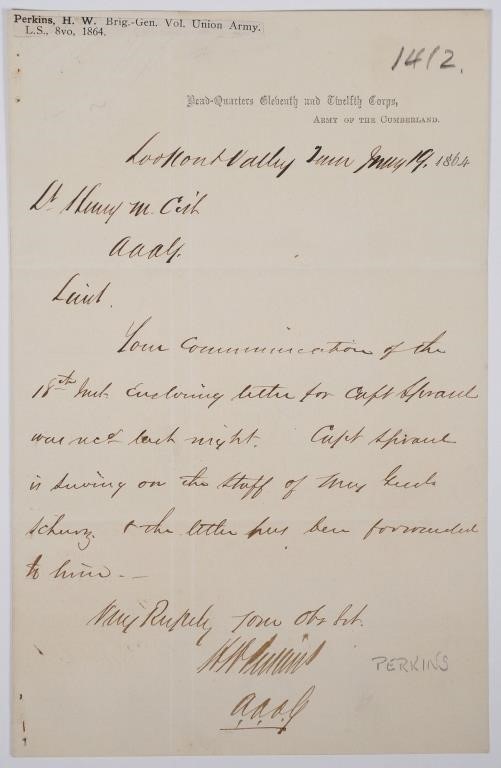 Perkins, H. W. Brig.-Gen. Vol. Union Army.
L.S., 8vo, 1864.
1412.
Head-Quarters Eleventh and Twelfth Corps,
ARMY OF THE CUMBERLAND.
Lookout Valley Tenn 19. 1864
Lt Henry M. Cist
A.A.A.G.
Lieut.
Your communication of the
18th Inst. Enclosing letter for Capt Spraul
was recd last night. Capt Spraul
is serving on the staff of Maj Genl
Schurz. & the letter has been forwarded
to him. —
Very Respcly Your Obt Svt.
H W Perkins
PERKINS
A.A.A.G